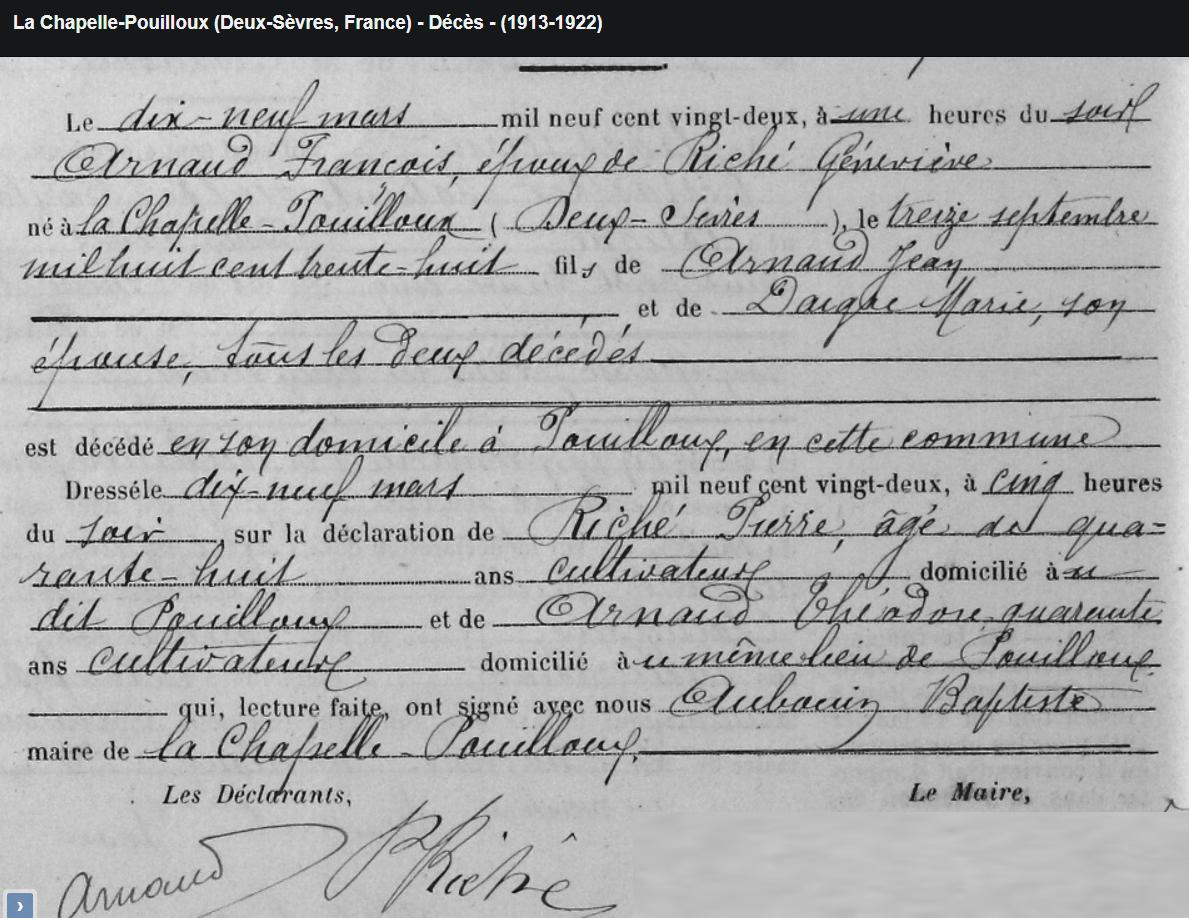 La Chapelle-Pouilloux (Deux-Sèvres, France) - Décès - (1913-1922)
Le dix-neuf mars mil neuf cent vingt-deux, à une heures du soir
Arnaud François, époux de Riché Géneviève
né à la Chapelle-Pouilloux (Deux-Sèvres), le treize septembre
mil huit cent trente-huit fils de Arnaud Jean
et de Daigne Marie, son
épouse, tous les deux décédés
est décédé en son domicile à Pouilloux, en cette commune
Dressé le dix-neuf mars mil neuf cent vingt-deux, à cinq heures
du soir, sur la déclaration de Riché Pierre, âgé de qua-
rante-huit ans cultivateur domicilié à u
dit Pouilloux et de Arnaud Théodore, quarante
ans cultivateur domicilié à u même lieu de Pouilloux
qui, lecture faite, ont signé avec nous Aubouin Baptiste
maire de la Chapelle-Pouilloux.
Les Déclarants, Le Maire,
Arnaud P Riché